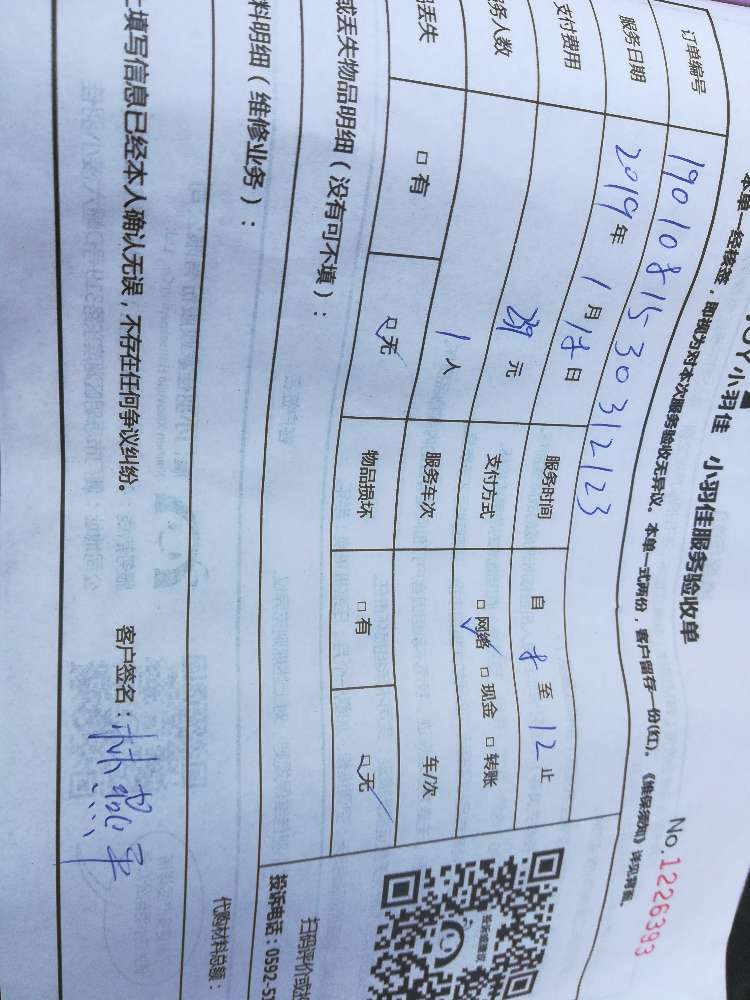 小羽佳 小羽佳服务验收单
No.1226393
本单一经接签，即视为对本次服务验收无异议。本单一式两份，客户留存一份(红)。《维保须知》详见背面。
订单编号 190108153031​2123
服务日期 2019年1月18日 服务时间 自 8 至 12 止
支付费用 元 支付方式 □网络 □现金 □转账
务人数 1人 服务车次 车/次
丢失 □有 □无 物品损坏 □有 □无
或丢失物品明细（没有可不填）：
料明细（维修业务）：
扫码评价或
投诉电话：0592-5
代购材料总额：
填写信息已经本人确认无误，不存在任何争议纠纷。 客户签名：林